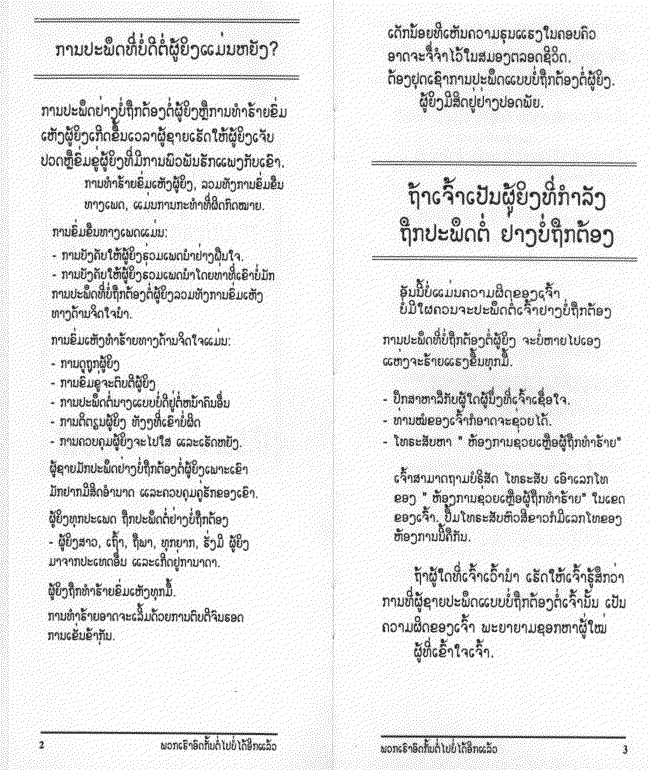 ການປະພຶດທີ່ບໍ່ດີຕໍ່ຜູ້ຍິງແມ່ນຫຍັງ?
ການປະພຶດຢ່າງບໍ່ຖືກຕ້ອງຕໍ່ຜູ້ຍິງຫຼືການທຳຮ້າຍຂົ່ມ
ເຫັງຜູ້ຍິງເກີດຂຶ້ນເວລາຜູ້ຊາຍເຮັດໃຫ້ຜູ້ຍິງເຈັບ
ປວດຫຼືຂົ່ມຂູ່ຜູ້ຍິງທີ່ມີການພົວພັນຮັກແພງກັບເຂົາ.
ການທຳຮ້າຍຂົ່ມເຫັງຜູ້ຍິງ, ລວມທັງການຂົ່ມຂືນ
ທາງເພດ, ແມ່ນການກະທຳທີ່ຜິດກົດໝາຍ.
ການຂົ່ມຂືນທາງເພດແມ່ນ:
- ການບັງຄັບໃຫ້ຜູ້ຍິງຮ່ວມເພດນຳຢ່າງຝືນໃຈ.
- ການບັງຄັບໃຫ້ຜູ້ຍິງຮ່ວມເພດນຳໂດຍທ່າທີ່ເຂົາບໍ່ມັກ
ການປະພຶດທີ່ບໍ່ຖືກຕ້ອງຕໍ່ຜູ້ຍິງລວມທັງການຂົ່ມເຫັງ
ທາງດ້ານຈິດໃຈນຳ.
ການຂົ່ມເຫັງທຳຮ້າຍທາງດ້ານຈິດໃຈແມ່ນ:
- ການດູຖູກຜູ້ຍິງ
- ການຂົ່ມຂູ່ຈະຕົບຕີຜູ້ຍິງ
- ການປະພຶດຕໍ່ນາງແບບບໍ່ດີຢູ່ຕໍ່ຫນ້າຄົນອື່ນ
- ການຕິຕຽນຜູ້ຍິງ ທັງໆທີ່ເຂົາບໍ່ຜິດ
- ການຄວບຄຸມຜູ້ຍິງຈະໄປໃສ ແລະເຮັດຫຍັງ.
ຜູ້ຊາຍມັກປະພຶດຢ່າງບໍ່ຖືກຕ້ອງຕໍ່ຜູ້ຍິງເພາະເຂົາ
ມັກຢາກມີສິດອຳນາດ ແລະຄວບຄຸມຄູ່ຮັກຂອງເຂົາ.
ຜູ້ຍິງທຸກປະເພດ ຖືກປະພຶດຕໍ່ຢ່າງບໍ່ຖືກຕ້ອງ
- ຜູ້ຍິງສາວ, ເຖົ້າ, ຖືພາ, ທຸກຍາກ, ຮັ່ງມີ ຜູ້ຍິງ
ມາຈາກປະເທດອື່ນ ແລະເກີດຢູ່ການາດາ.
ຜູ້ຍິງຖືກທຳຮ້າຍຂົ່ມເຫັງທຸກມື້.
ການທຳຮ້າຍອາດຈະເລີ້ມດ້ວຍການຕົບຕີຈົນຮອດ
ການເຂັ່ນຂ້າກັນ.
2
ພວກເຮົາອົດກັ້ນຕໍ່ໄປບໍ່ໄດ້ອີກແລ້ວ
ເດັກນ້ອຍທີ່ເຫັນຄວາມຮຸນແຮງໃນຄອບຄົວ
ອາດຈະຈື່ຈຳໄວ້ໃນສມອງຕລອດຊີວິດ.
ຕ້ອງຢຸດເຊົາການປະພຶດແບບບໍ່ຖືກຕ້ອງຕໍ່ຜູ້ຍິງ.
ຜູ້ຍິງມີສິດຢູ່ຢ່າງປອດພັຍ.
ຖ້າເຈົ້າເປັນຜູ້ຍິງທີ່ກຳລັງ
ຖືກປະພຶດຕໍ່ ຢ່າງບໍ່ຖືກຕ້ອງ
ອັນນີ້ບໍ່ແມ່ນຄວາມຜິດຂອງເຈົ້າ
ບໍ່ມີໃຜຄວນຈະປະພຶດຕໍ່ເຈົ້າຢ່າງບໍ່ຖືກຕ້ອງ
ການປະພຶດທີ່ບໍ່ຖືກຕ້ອງຕໍ່ຜູ້ຍິງ ຈະບໍ່ຫາຍໄປເອງ
ແຫ່ງຈະຮ້າຍແຮງຂຶ້ນທຸກມື້.
- ປຶກສາຫາລືກັບຜູ້ໃດຜູ້ນຶ່ງທີ່ເຈົ້າເຊື່ອໃຈ.
- ທ່ານໝໍຂອງເຈົ້າກໍອາດຈະຊ່ວຍໄດ້.
- ໂທຣະສັບຫາ " ຫ້ອງການຊ່ວຍເຫຼືອຜູ້ຖືກທຳຮ້າຍ"
ເຈົ້າສາມາດຖາມບໍຣິສັດ ໂທຣະສັບ ເອົາເລກໂທ
ຂອງ " ຫ້ອງການຊ່ວຍເຫຼືອຜູ້ຖືກທຳຮ້າຍ" ໃນເຂດ
ຂອງເຈົ້າ. ປຶ້ມໂທຣະສັບຫົວສີຂາວກໍມີເລກໂທຂອງ
ຫ້ອງການນີ້ຄືກັນ.
ຖ້າຜູ້ໃດທີ່ເຈົ້າເວົ້ານຳ ເຮັດໃຫ້ເຈົ້າຮູ້ສຶກວ່າ
ການທີ່ຜູ້ຊາຍປະພຶດແບບບໍ່ຖືກຕ້ອງຕໍ່ເຈົ້ານັ້ນ ເປັນ
ຄວາມຜິດຂອງເຈົ້າ ພະຍາຍາມຊອກຫາຜູ້ໃໝ່
ຜູ້ທີ່ເຂົ້າໃຈເຈົ້າ.
ພວກເຮົາອົດກັ້ນຕໍ່ໄປບໍ່ໄດ້ອີກແລ້ວ
3